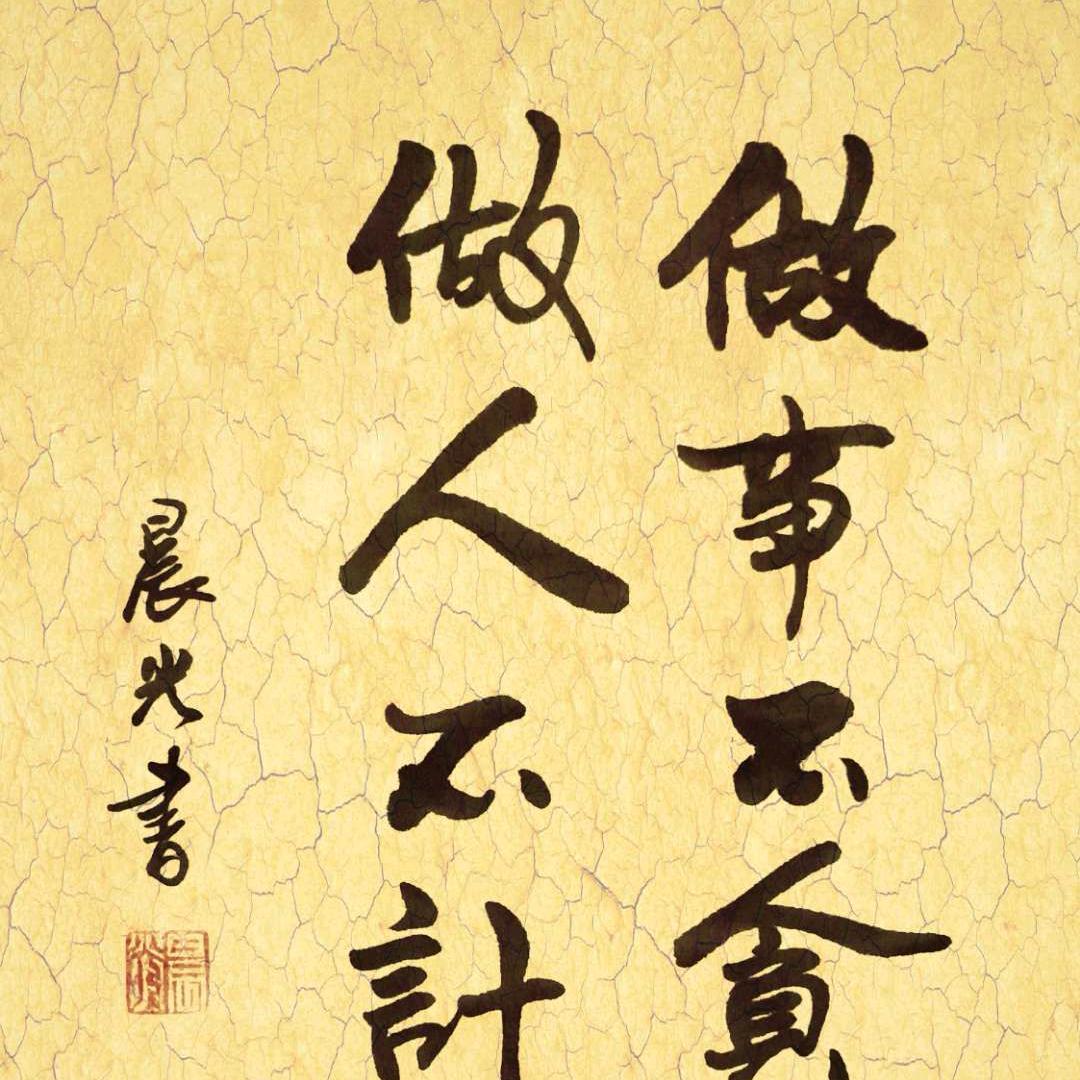 做事不貪
做人不計
晨光書